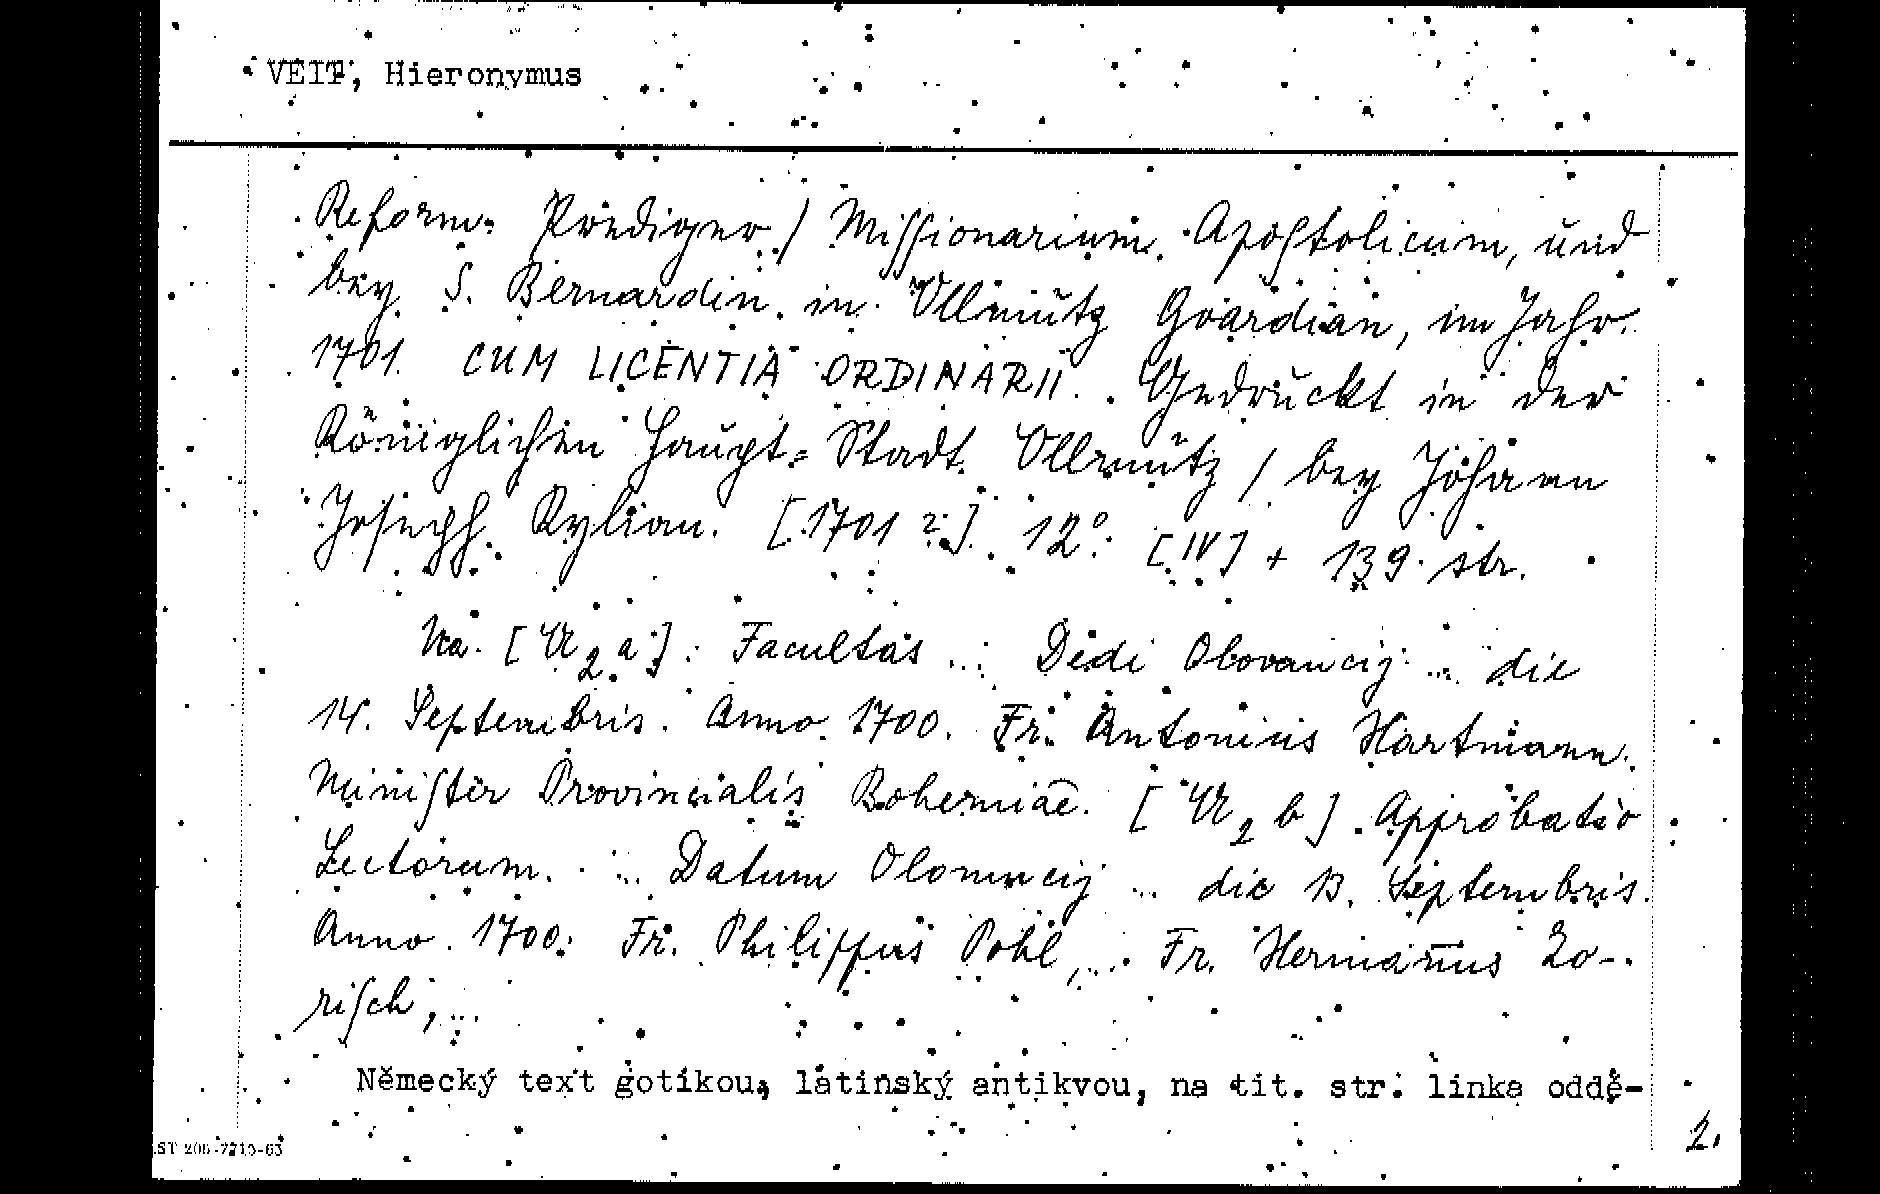 VEIT, Hieronymus
Reform. Prediger / Missionarium Apostolicum, und
bey S. Bernardin in Ollmütz Gvardian, im Jahr
1701. CUM LICENTIA ORDINARII. Gedruckt in der
Königlichen Haupt=Stadt Ollmütz / bey Johann
Joseph Kylian. [1701?] 12° [IV] + 139 str.
Na [A2a]: Facultas ... Dedi Olomucij ... die
14. Septembris. Anno 1700. Fr. Antonius Hartmann
Minister Provincialis Bohemiae. [A2b] Approbatio
Lectorum. ... Datum Olomucij ... die 13. Septembris.
Anno 1700. Fr. Philippus Pohl, ... Fr. Hermanus Lo-
risch, ...
Německý text gotikou, latinský antikvou, na tit. str. linka oddě-
2.
ST 206-7715-63